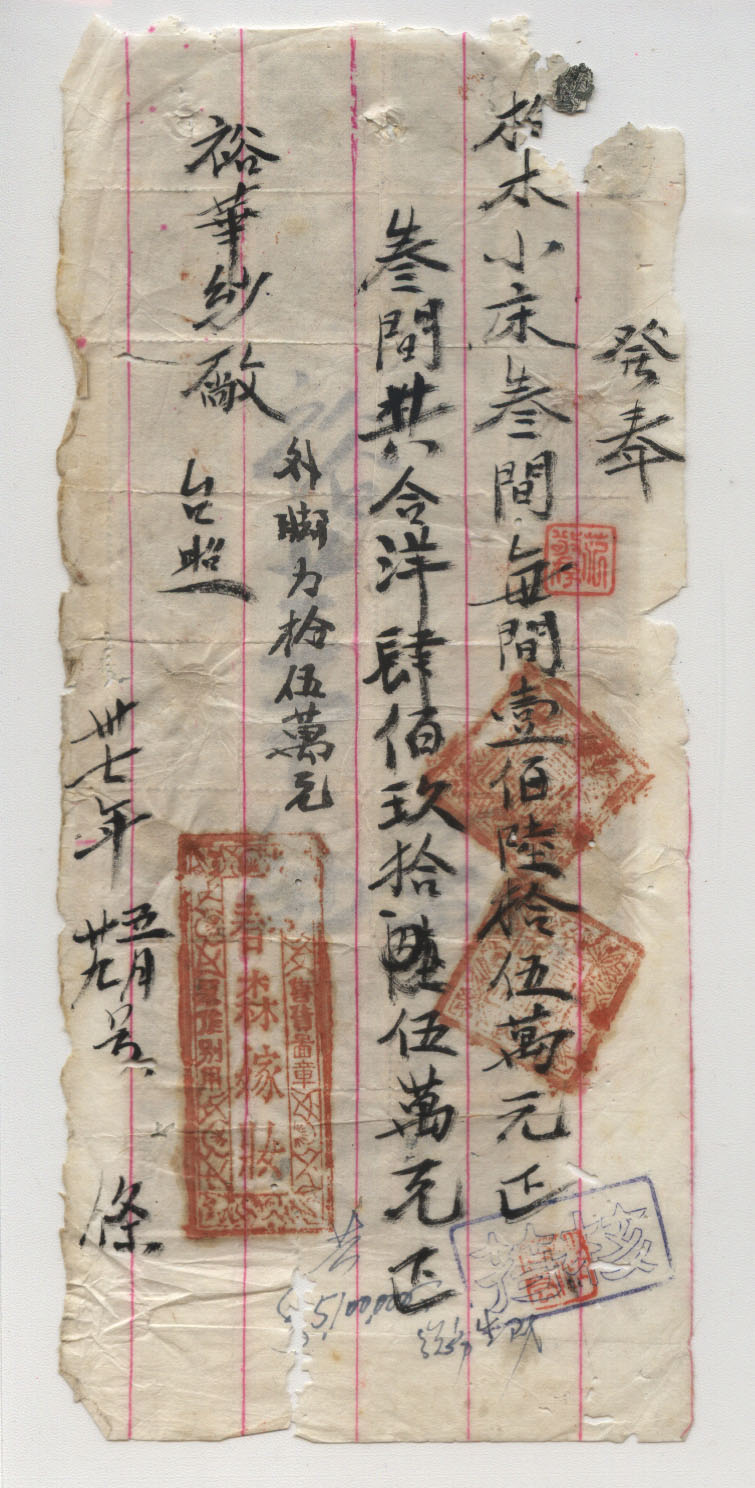 發奉
木小床叁間每間壹佰陸拾伍萬元正
叁間共合洋肆佰玖拾伍萬元正
外腳力拾伍萬元
裕華紗廠
台照
卅七年五月廿九号
條
春森嫁妝
圖章
別用
共5100000